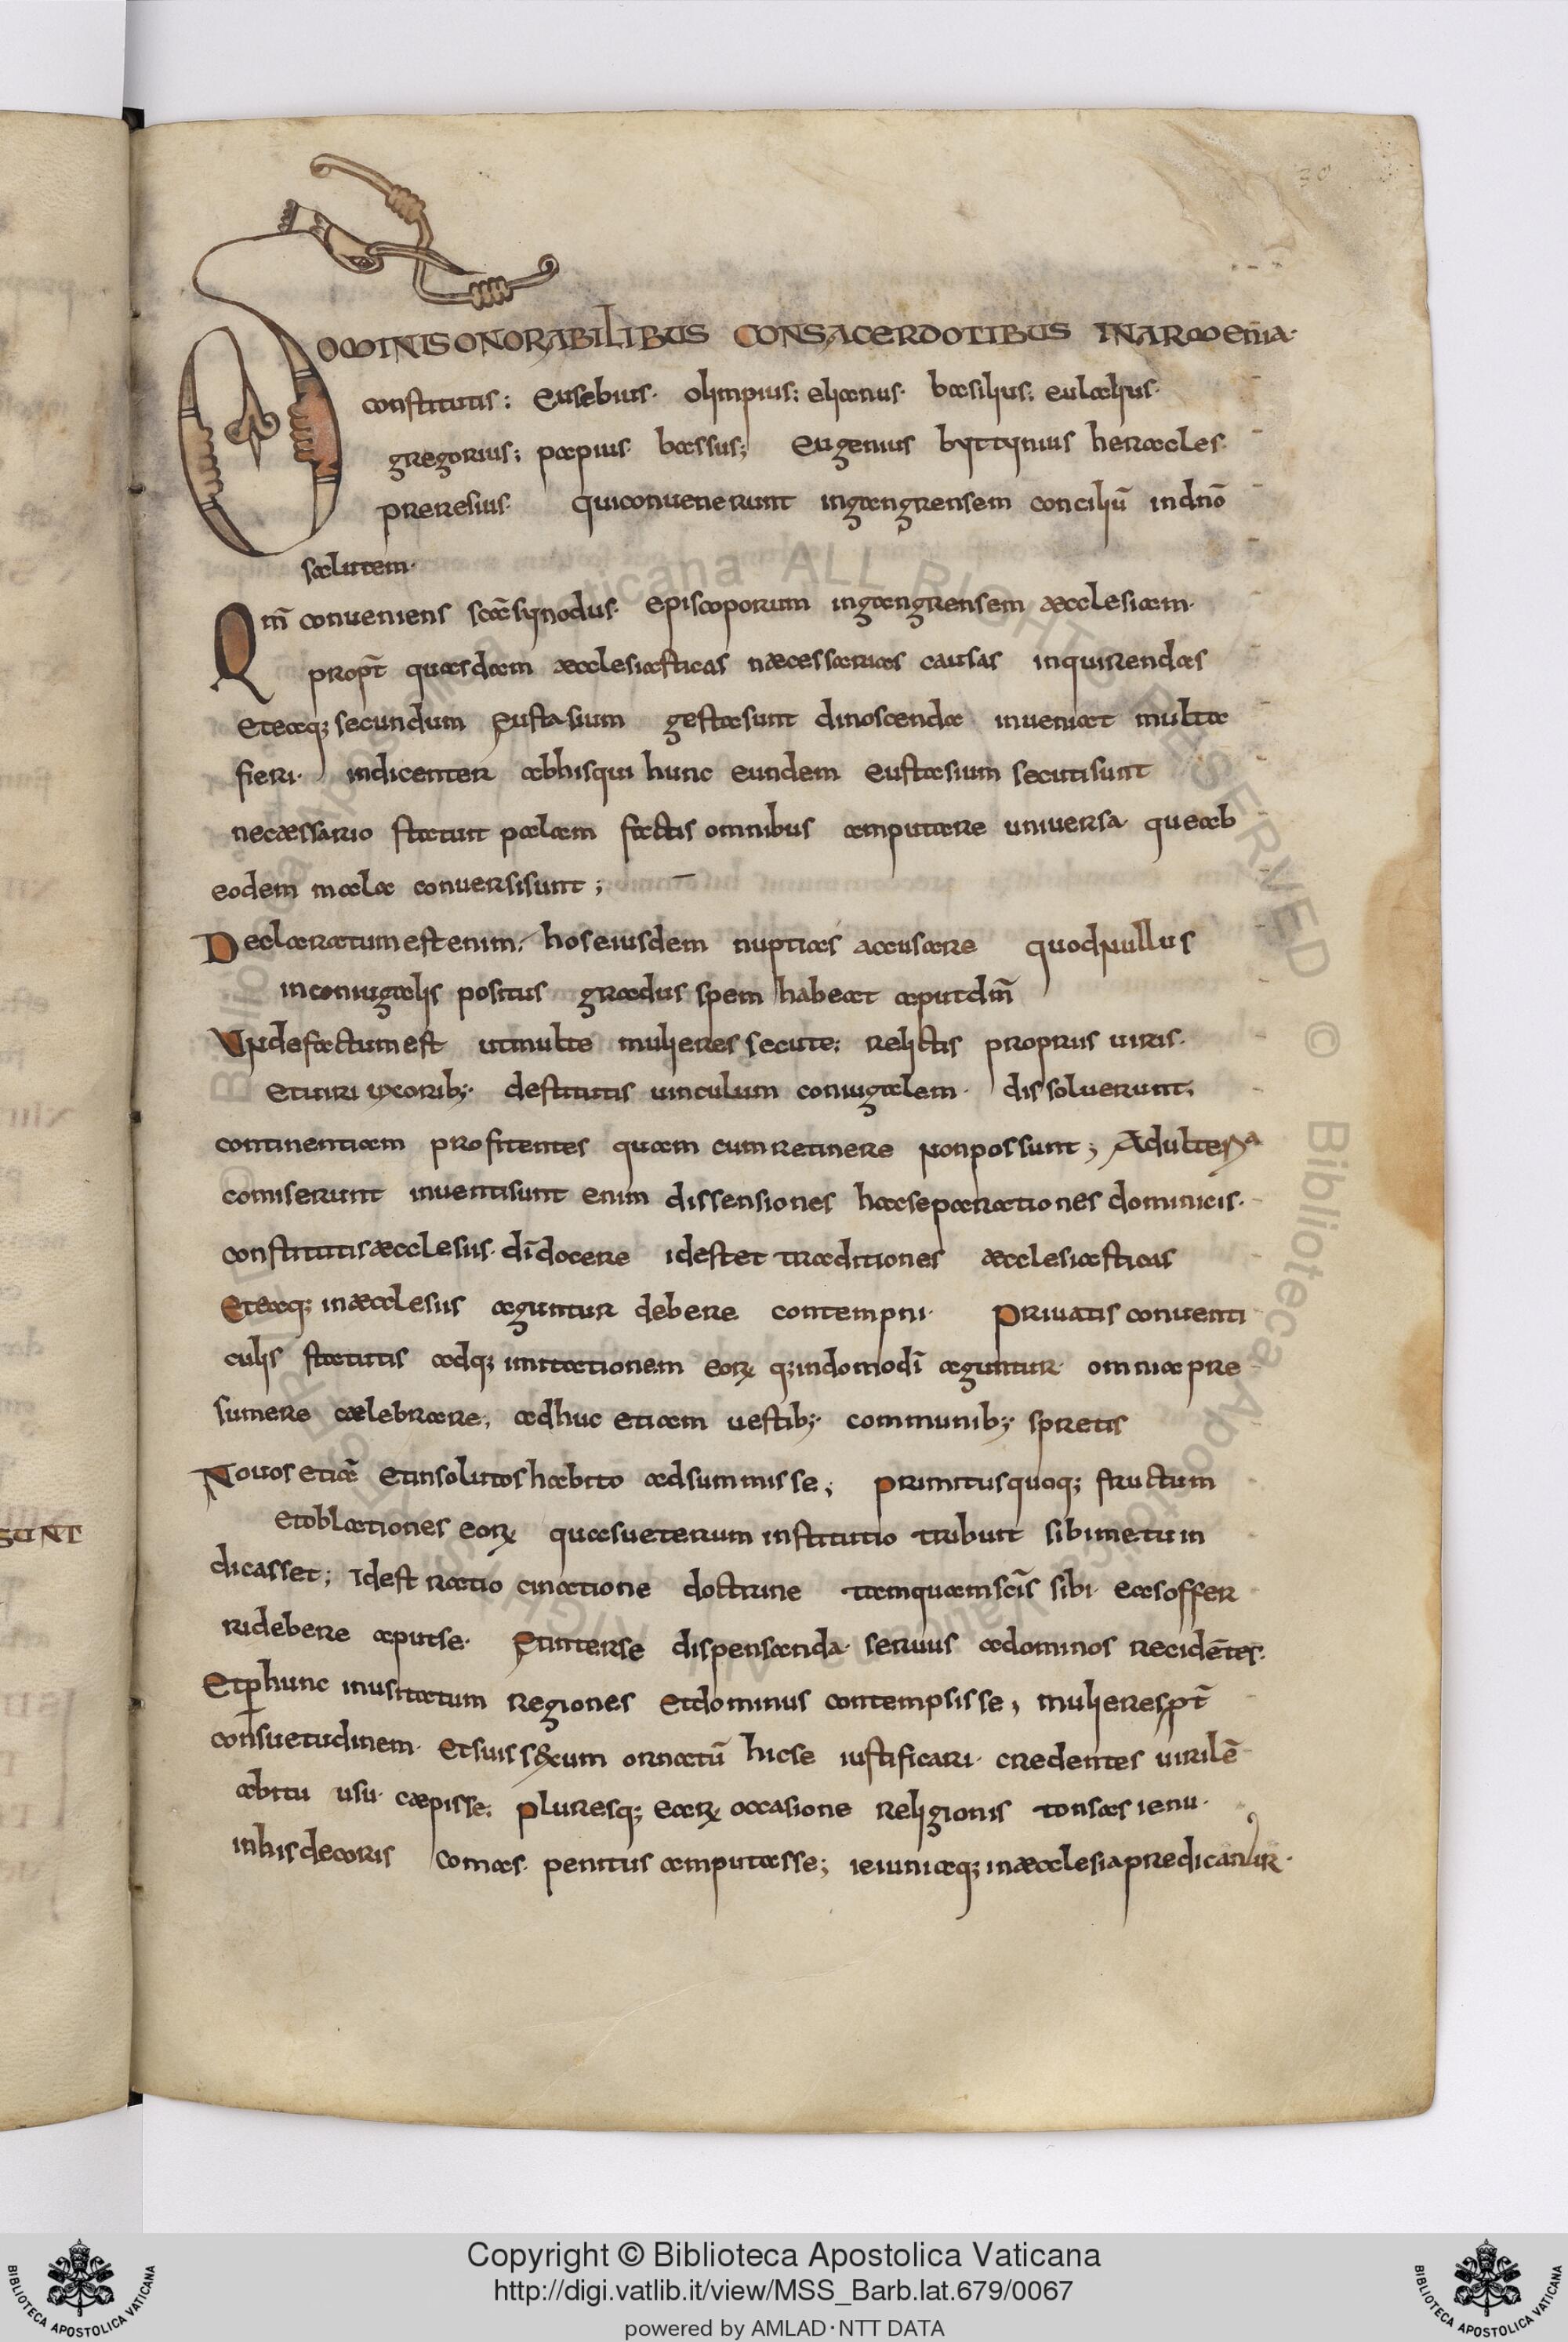 DOMINIS ONORABILIBUS CONSACERDOTIBUS IN ARMENIA·
constitutis; eusebius· olimpius; elianus· basilius; eulalius·
gregorius; papius· bassus; eugenius byttynius heracles·
preresius· qui convenerunt in gangrensem conciliū in dn̄o
salutem·
Qm̄ conveniens sc̄a synodus· episcoporum in gangrensem æcclesiam·
propt̄ quasdam æcclesiasticas næcessarias causas inquirendas
et eaq; secundum eustasium gesta sunt dinoscenda inveniat multa
fieri· indicenter ab his qui hunc eundem eustasium secuti sunt
necæssario statuit palam factis omnibus amputare universa que ab
eodem mala conversi sunt;
Declaratum est enim· hos eiusdem nuptias accusare quod nullus
in coniugalis positus gradus spem habeat aput dm̄
Unde factum est ut multe mulieres secute; relictis propriis viris·
et viri uxorib;· destitutis vinculum coniugalem· dissolverunt;
continentiam profitentes quam cum retinere non possunt; Adulteria
comiserunt inventi sunt enim dissensiones hac separationes dominicis·
constitutis æcclesiis· dī docere id est et traditiones æcclesiasticas
et eaq; in æcclesiis aguntur debere contempni· Privatis conventi
culis statutis adq; imitationem eoꝝ q; in domo dī aguntur· omnia pre
sumere cælebrare, adhuc etiam vestib;· communib; spretis
Novos etiā et insolutos habito adsummisse; primitus quoq; fructum
et oblationes eoꝝ quas veterum institutio tribuit sibimet vin
dicasset; Id est ratio cinatione doctrine tamquam sc̄is sibi· eas offer
ri debere aput se· Et inter se dispensanda· servus a dominos recidētes·
Et p hunc inusitatum regiones et dominus contempsisse, mulieres ppt̄
consuetudinem· et suis sexum ornatū hic se iustificari· credentes virilē
abitu usu· cæpisse; pluresq; earꝝ occasione religionis tonsas ienu·
inhis decoris comas· penitus amputasse; ieiuniaq; in æcclesia predicantur·
SUNT
Copyright © Biblioteca Apostolica Vaticana
http://digi.vatlib.it/view/MSS_Barb.lat.679/0067
powered by AMLAD·NTT DATA
BIBLIOTECA APOSTOLICA VATICANA
BIBLIOTECA APOSTOLICA VATICANA